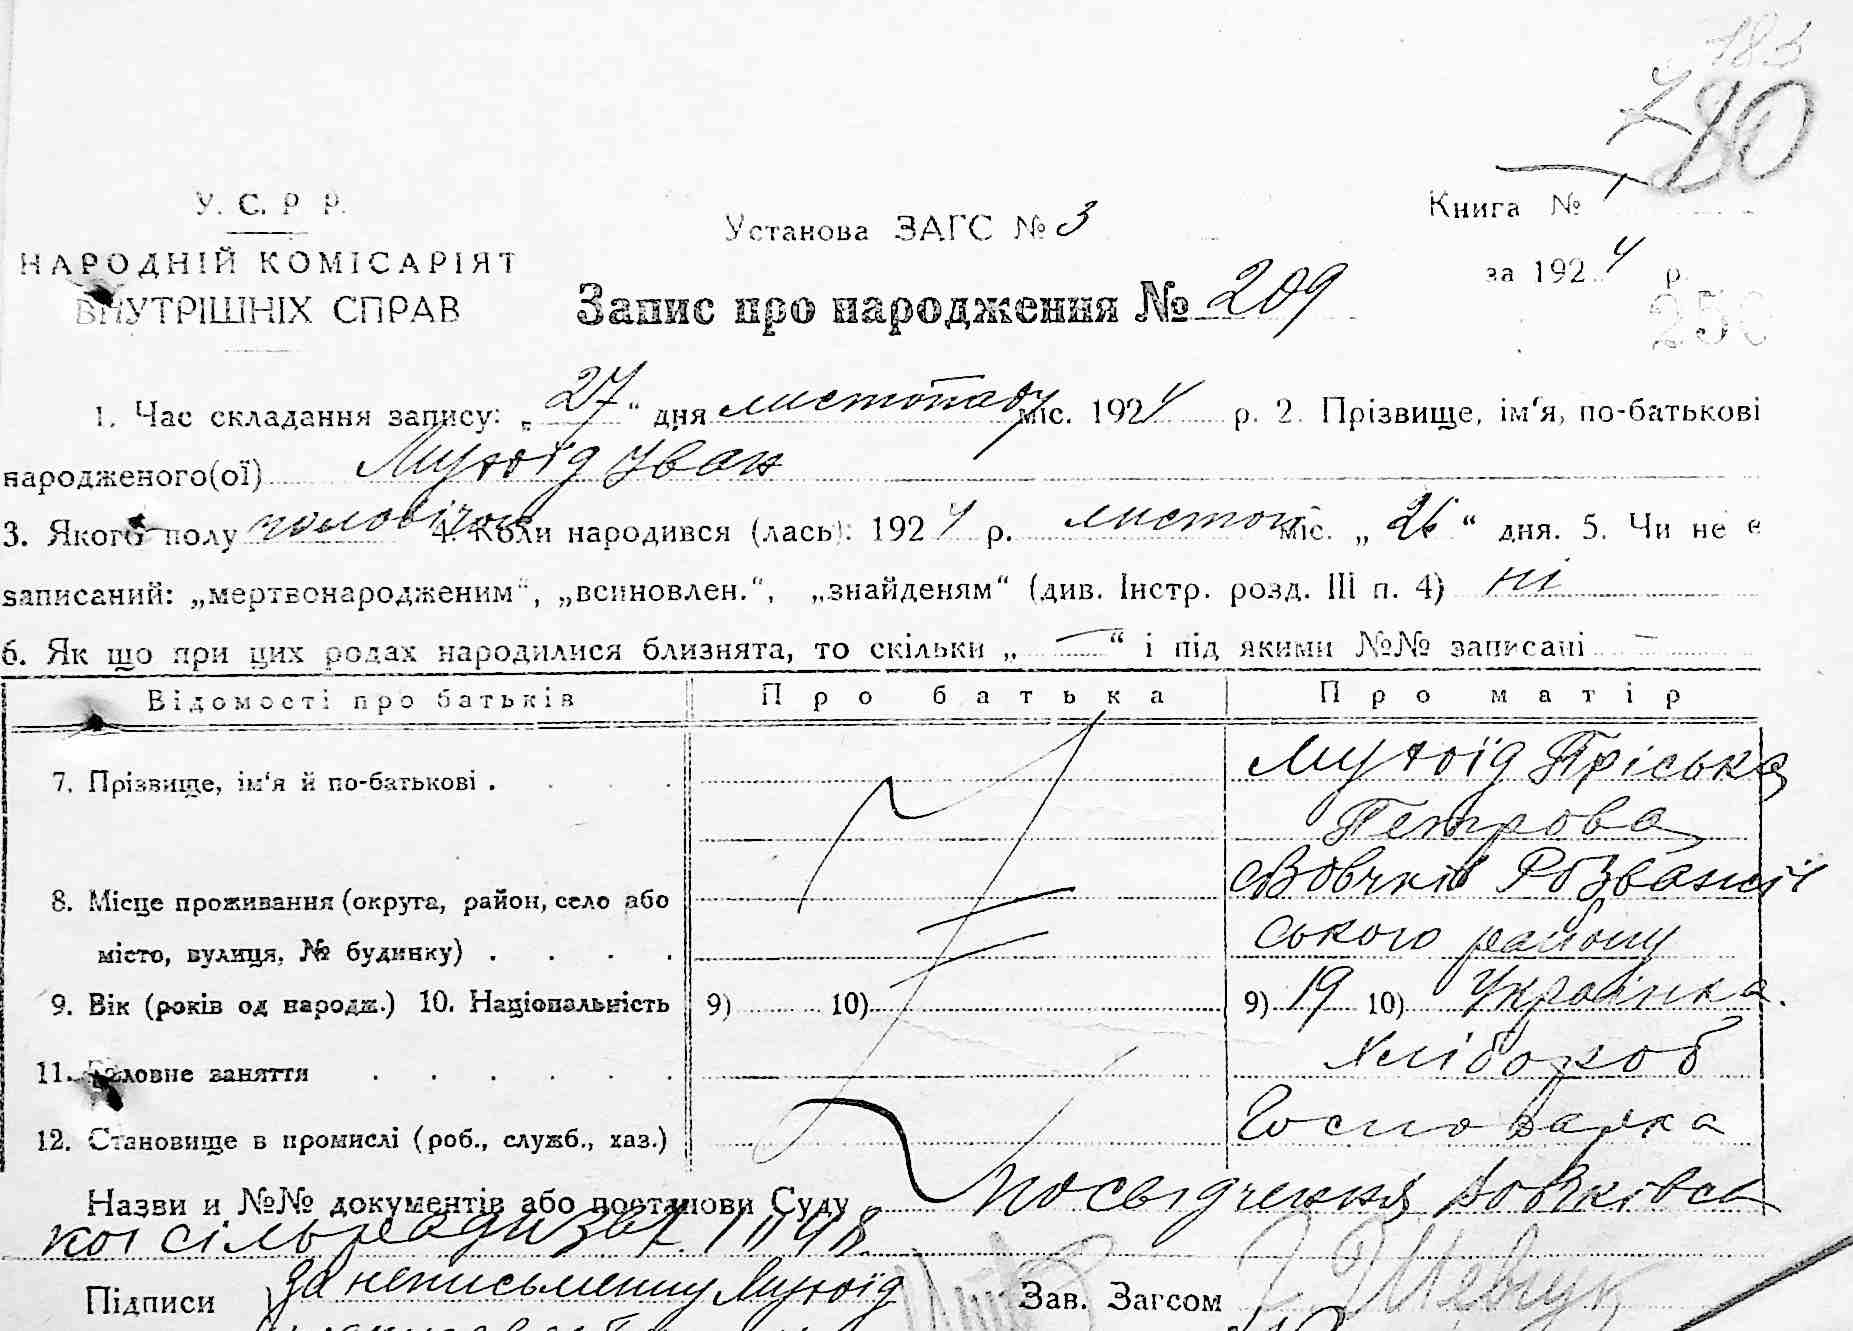 183
80
У. С. Р Р.
Установа ЗАГС № 3
Книга № 1
НАРОДНІЙ КОМІСАРІЯТ
за 1924 р.
ВНУТРІШНІХ СПРАВ
Запис про народження № 209
250
1. Час складання запису: „27“ дня листопаду міс. 1924 р. 2. Прізвище, ім‘я, по-батькові
народженого(ої) Мухоїд Іван
3. Якого полу чоловічого 4. Коли народився (лась): 1924 р. листоп міс. „26“ дня. 5. Чи не є
записаний: „мертвонародженим“, „всиновлен.“, „знайденям“ (див. Інстр. розд. III п. 4) ні
6. Як що при цих родах народилися близнята, то скільки „—“ і під якими №№ записані —
Відомості про батьків Про батька Про матір
7. Прізвище, ім‘я й по-батькові . Мухоїд Пріська
Петрова
8. Місце проживання (округа, район, село або с Вовчків Розважів
місто, вулиця, № будинку) . ського району
9. Вік (років од народж.) 10. Національність 9) 10) 9) 19 10) Українка.
11. Головне заняття Хлібороб
12. Становище в промислі (роб., служб., хаз.) Господарка
Назви и №№ документів або постанови Суду посвідчення Вовчківсь
кої сільради за №
Підписи За неписьменну Мухоїд Зав. Загсом Шевчук